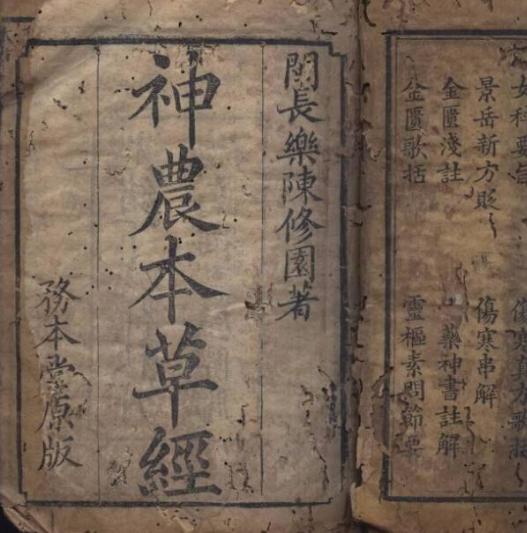 女科要旨
景岳新方貶
傷寒串解
金匱淺註
藥神書註解
金匱歌括
靈樞素問節要
閩長樂陳修園著
神農本草經
務本堂原版